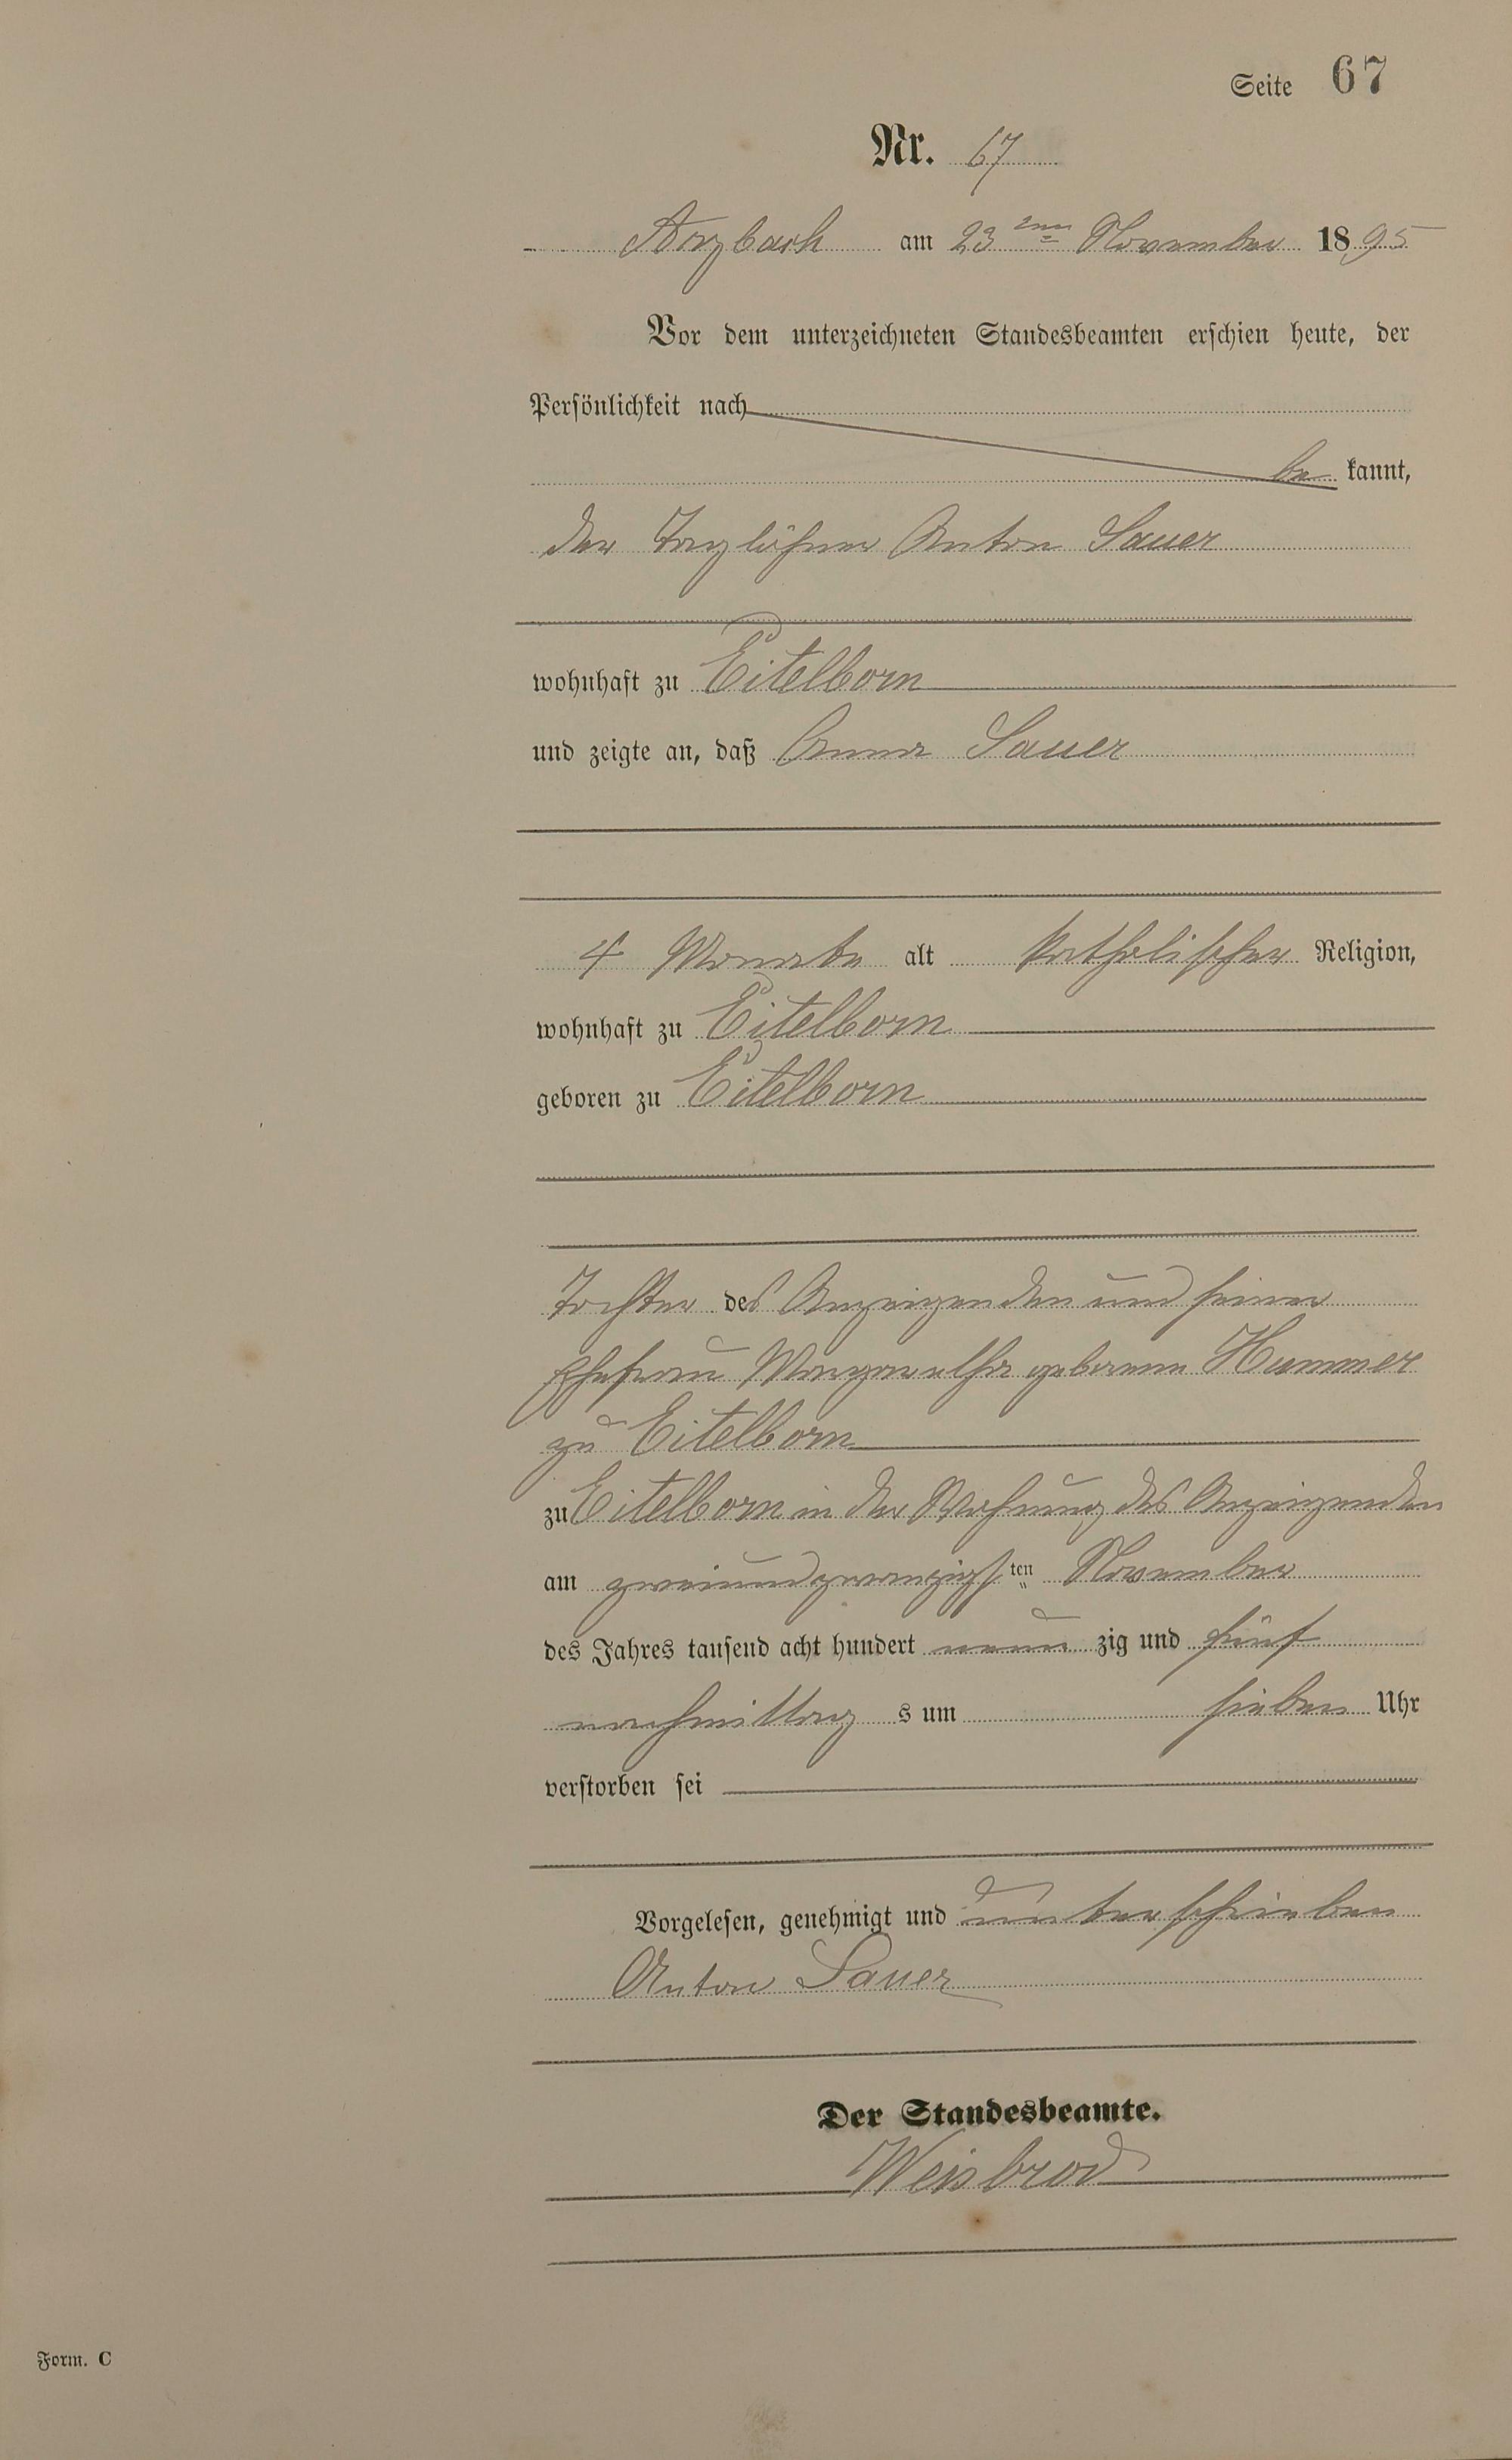 Seite 67
Nr. 67
Arzbach am 23ten November 1895
Vor dem unterzeichneten Standesbeamten erschien heute, der
Persönlichkeit nach
be kannt,
der Taglöhner Anton Sauer
wohnhaft zu Eitelborn
und zeigte an, daß Anna Sauer
4 Monate alt katholischer Religion,
wohnhaft zu Eitelborn
geboren zu Eitelborn
Tochter des Anzeigenden und seiner
Ehefrau Margaretha geborene Hummer
zu Eitelborn
zu Eitelborn in der Wohnung des Anzeigenden
am zweiundzwanzigsten November
des Jahres tausend acht hundert neun zig und fünf
nachmittag s um sieben Uhr
verstorben sei
Vorgelesen, genehmigt und unterschrieben
Anton Sauer
Der Standesbeamte.
Weisbrod
Form. C